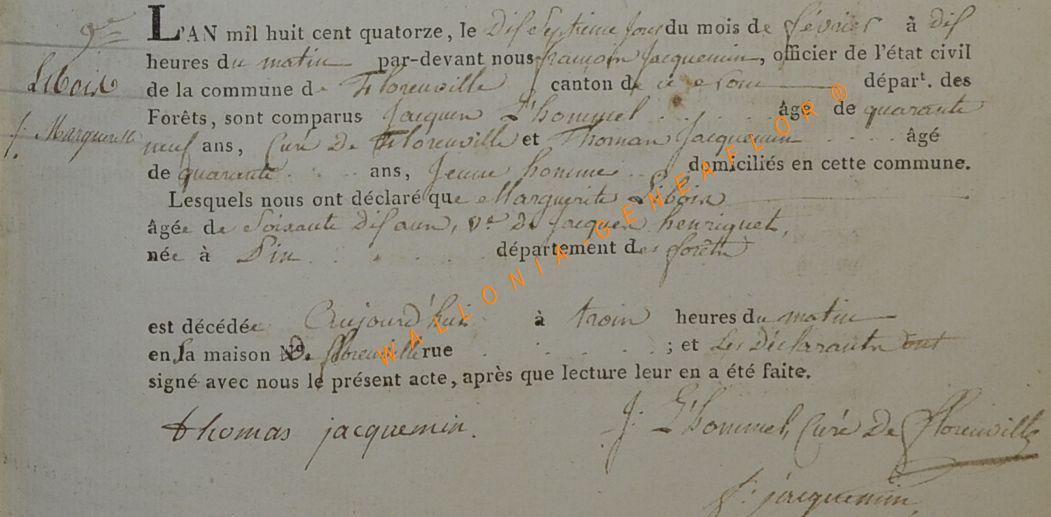 9e
L'AN mil huit cent quatorze, le Dis Septieme jour du mois de février à dis
heures du matin par-devant nous françois Jacquemin, officier de l'état civil
Liboix
de la commune de Florenville canton de ce nom départ. des
Forêts, sont comparus Jacques L'hommel âgé de quarante
f. Marguerite
neuf ans, Curé De Florenville et Thomas Jacquemin âgé
de quarante ans, Jeune homme domiciliés en cette commune.
Lesquels nous ont déclaré que Marguerite Liboix
âgée de Soixante dis ans, ve. De jacques henriquet,
née à Pin département des forêts
est décédée Aujourd'hui à trois heures du matin
en sa maison No. De florenville rue ; et Les Déclarants ont
signé avec nous le présent acte, après que lecture leur en a été faite.
thomas jacquemin. J. L'hommel, Curé De florenville
f: jacquemin
WALLONIA-GENEAFLOR®